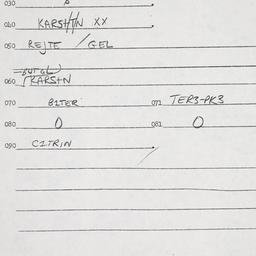 030
040 KARSHTN XX
050 REJTE / GEL
060 KARSTN
070 BITER 071 TER3-PK3
080 0 081 0
090 CITRIN